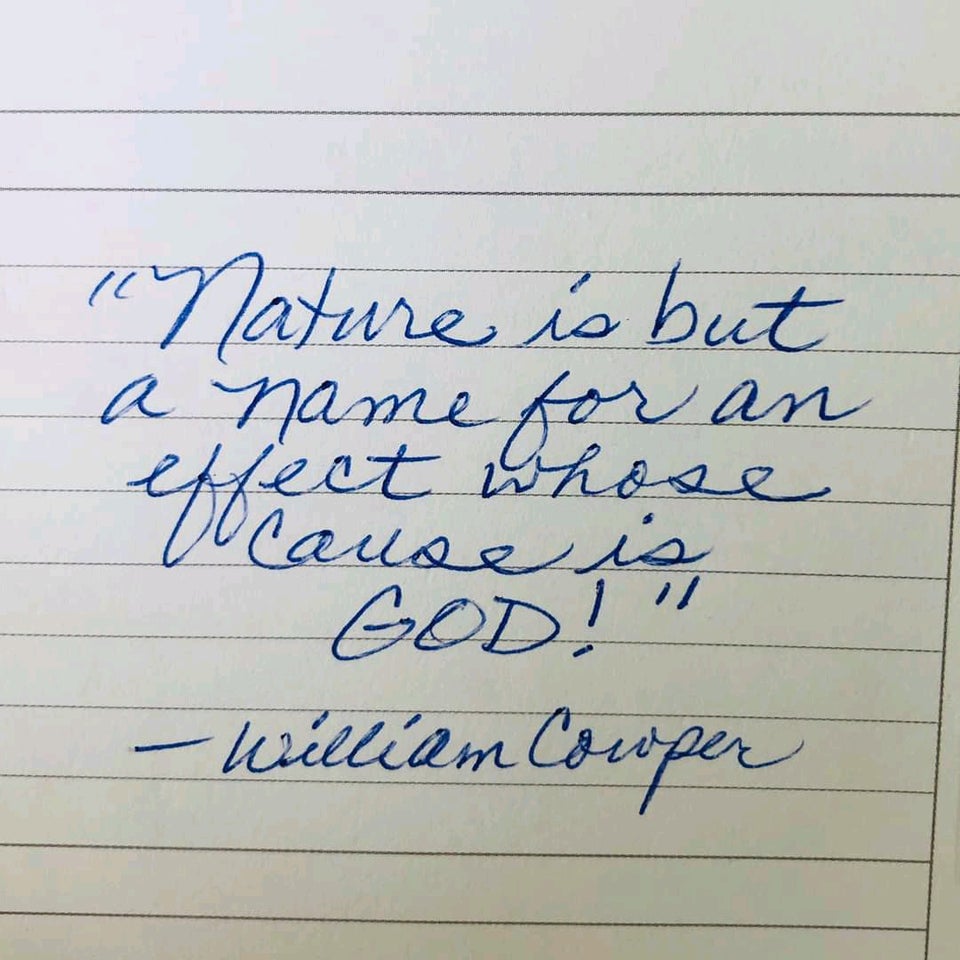 "Nature is but
a name for an
effect whose
cause is
GOD!"
- William Cowper